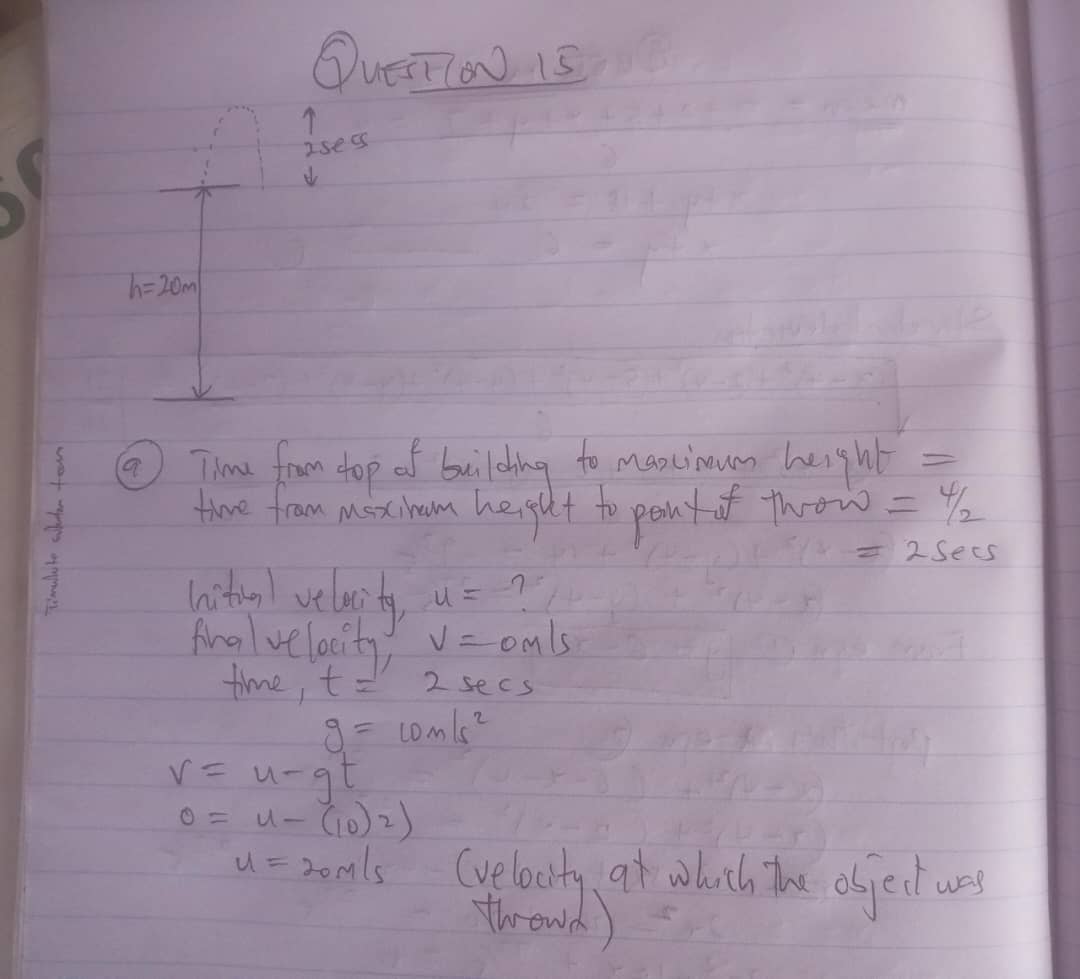 QUESTION 15
2secs
h=20m
(a) Time from top of building to maximum height =
time from maximum height to point of throw = 4/2
= 2 secs
Initial velocity, u = ?
final velocity, v = 0m/s
time, t = 2 secs
g = 10m/s²
v = u - gt
0 = u - (10)2)
u = 20m/s (velocity at which the object was
thrown)